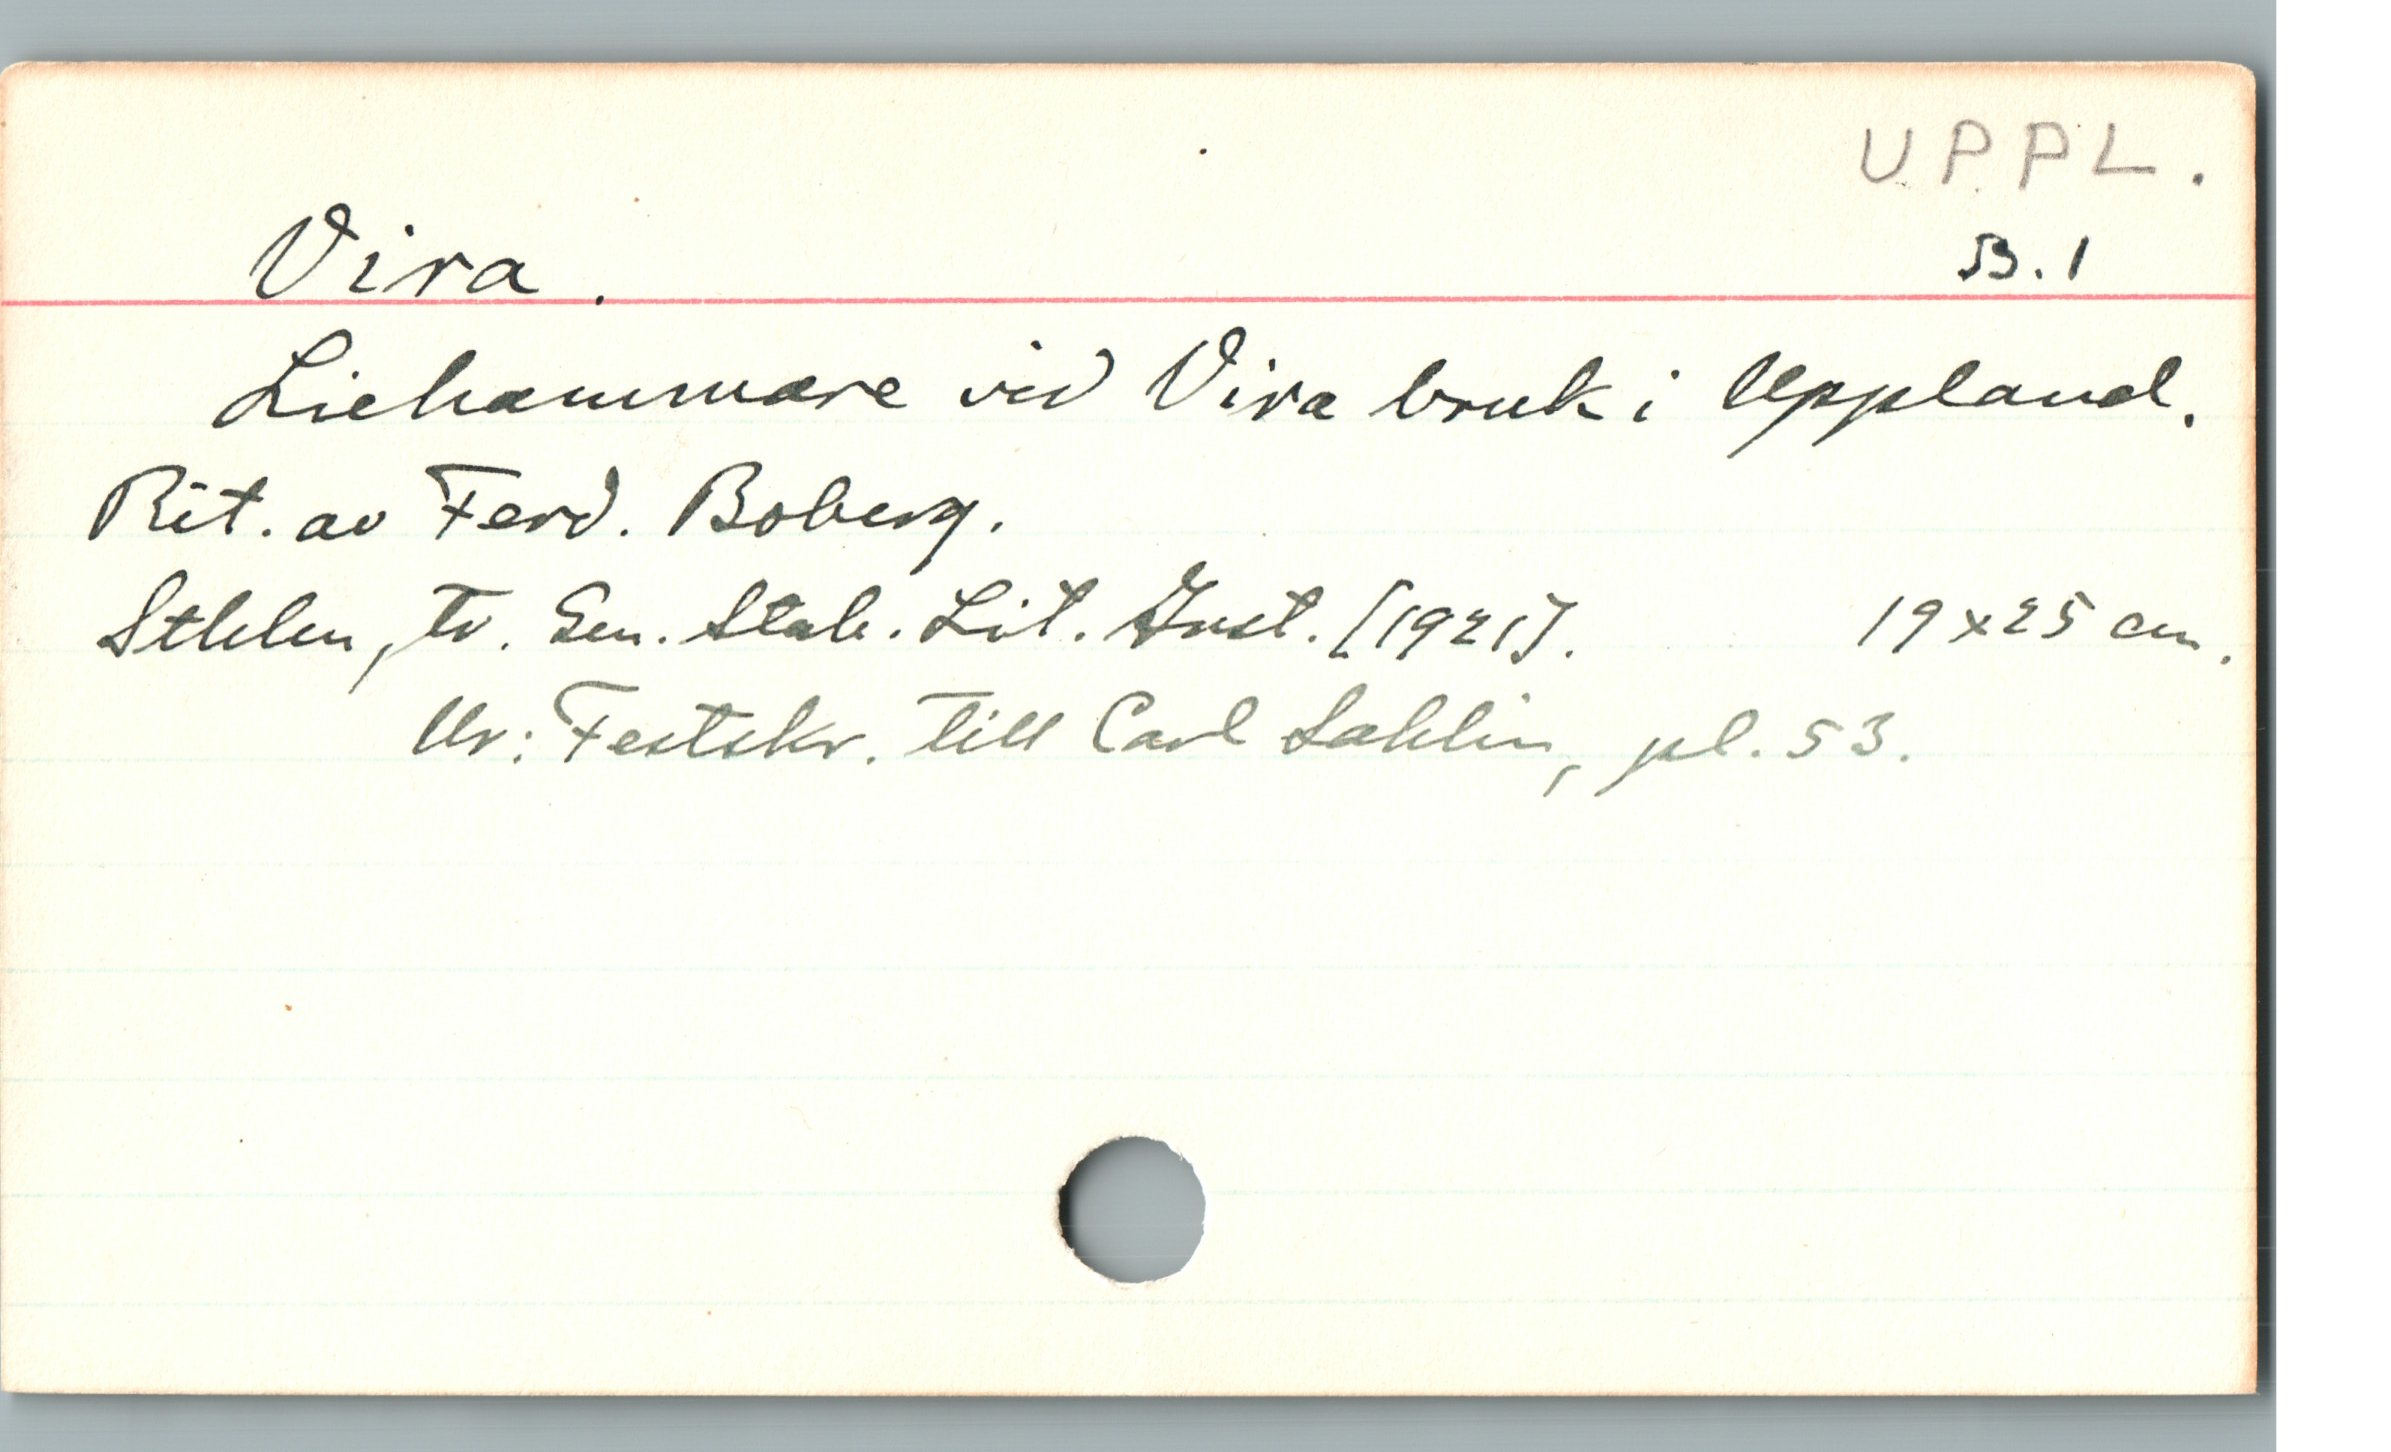 UPPL.
Vira. B.1
Liehammare vid Vira bruk i Uppland.
Rit. av Ferd. Boberg.
Sthlm, tr. Gen. Stab. Lit. Inst. [1921]. 19x25 cm.
Ur: Festskr. till Carl Sahlin, pl. 53.